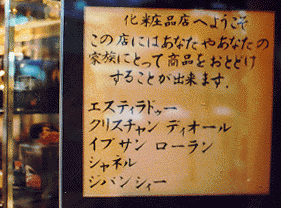 化粧品店へようこそ
この店にはあなたやあなたの
家族にとって商品をおとどけ
することが出来ます.
エスティラドゥー
クリスチャン ディオール
イブ サン ローラン
シャネル
ジバンシィー